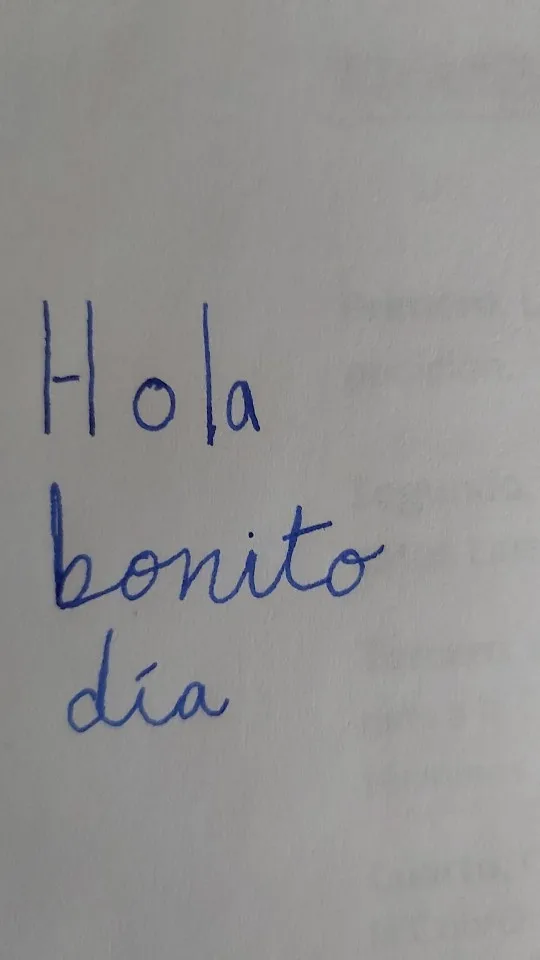 Hola
bonito
día